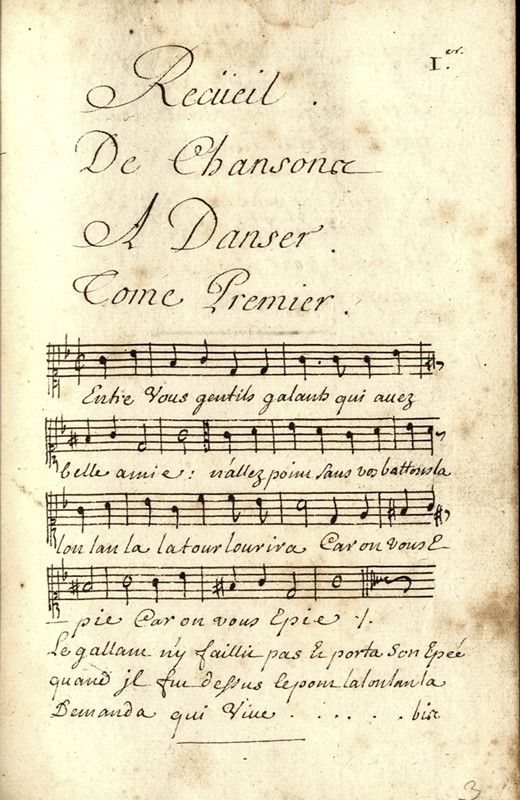 1.er
Recüeil.
De Chansons
A Danser.
Tome Premier.
Entre Vous gentils galants qui auez
belle amie: n'allez point sans vos battons la
lou lan la la tour lourira Car on vous E
pie Car on vous Epie ./.
Le gallant n'y faillit pas Et porta Son Epeé
quand jl fut dessus le pont la lou lan la
Demanda qui Vive . . . . . bis
3